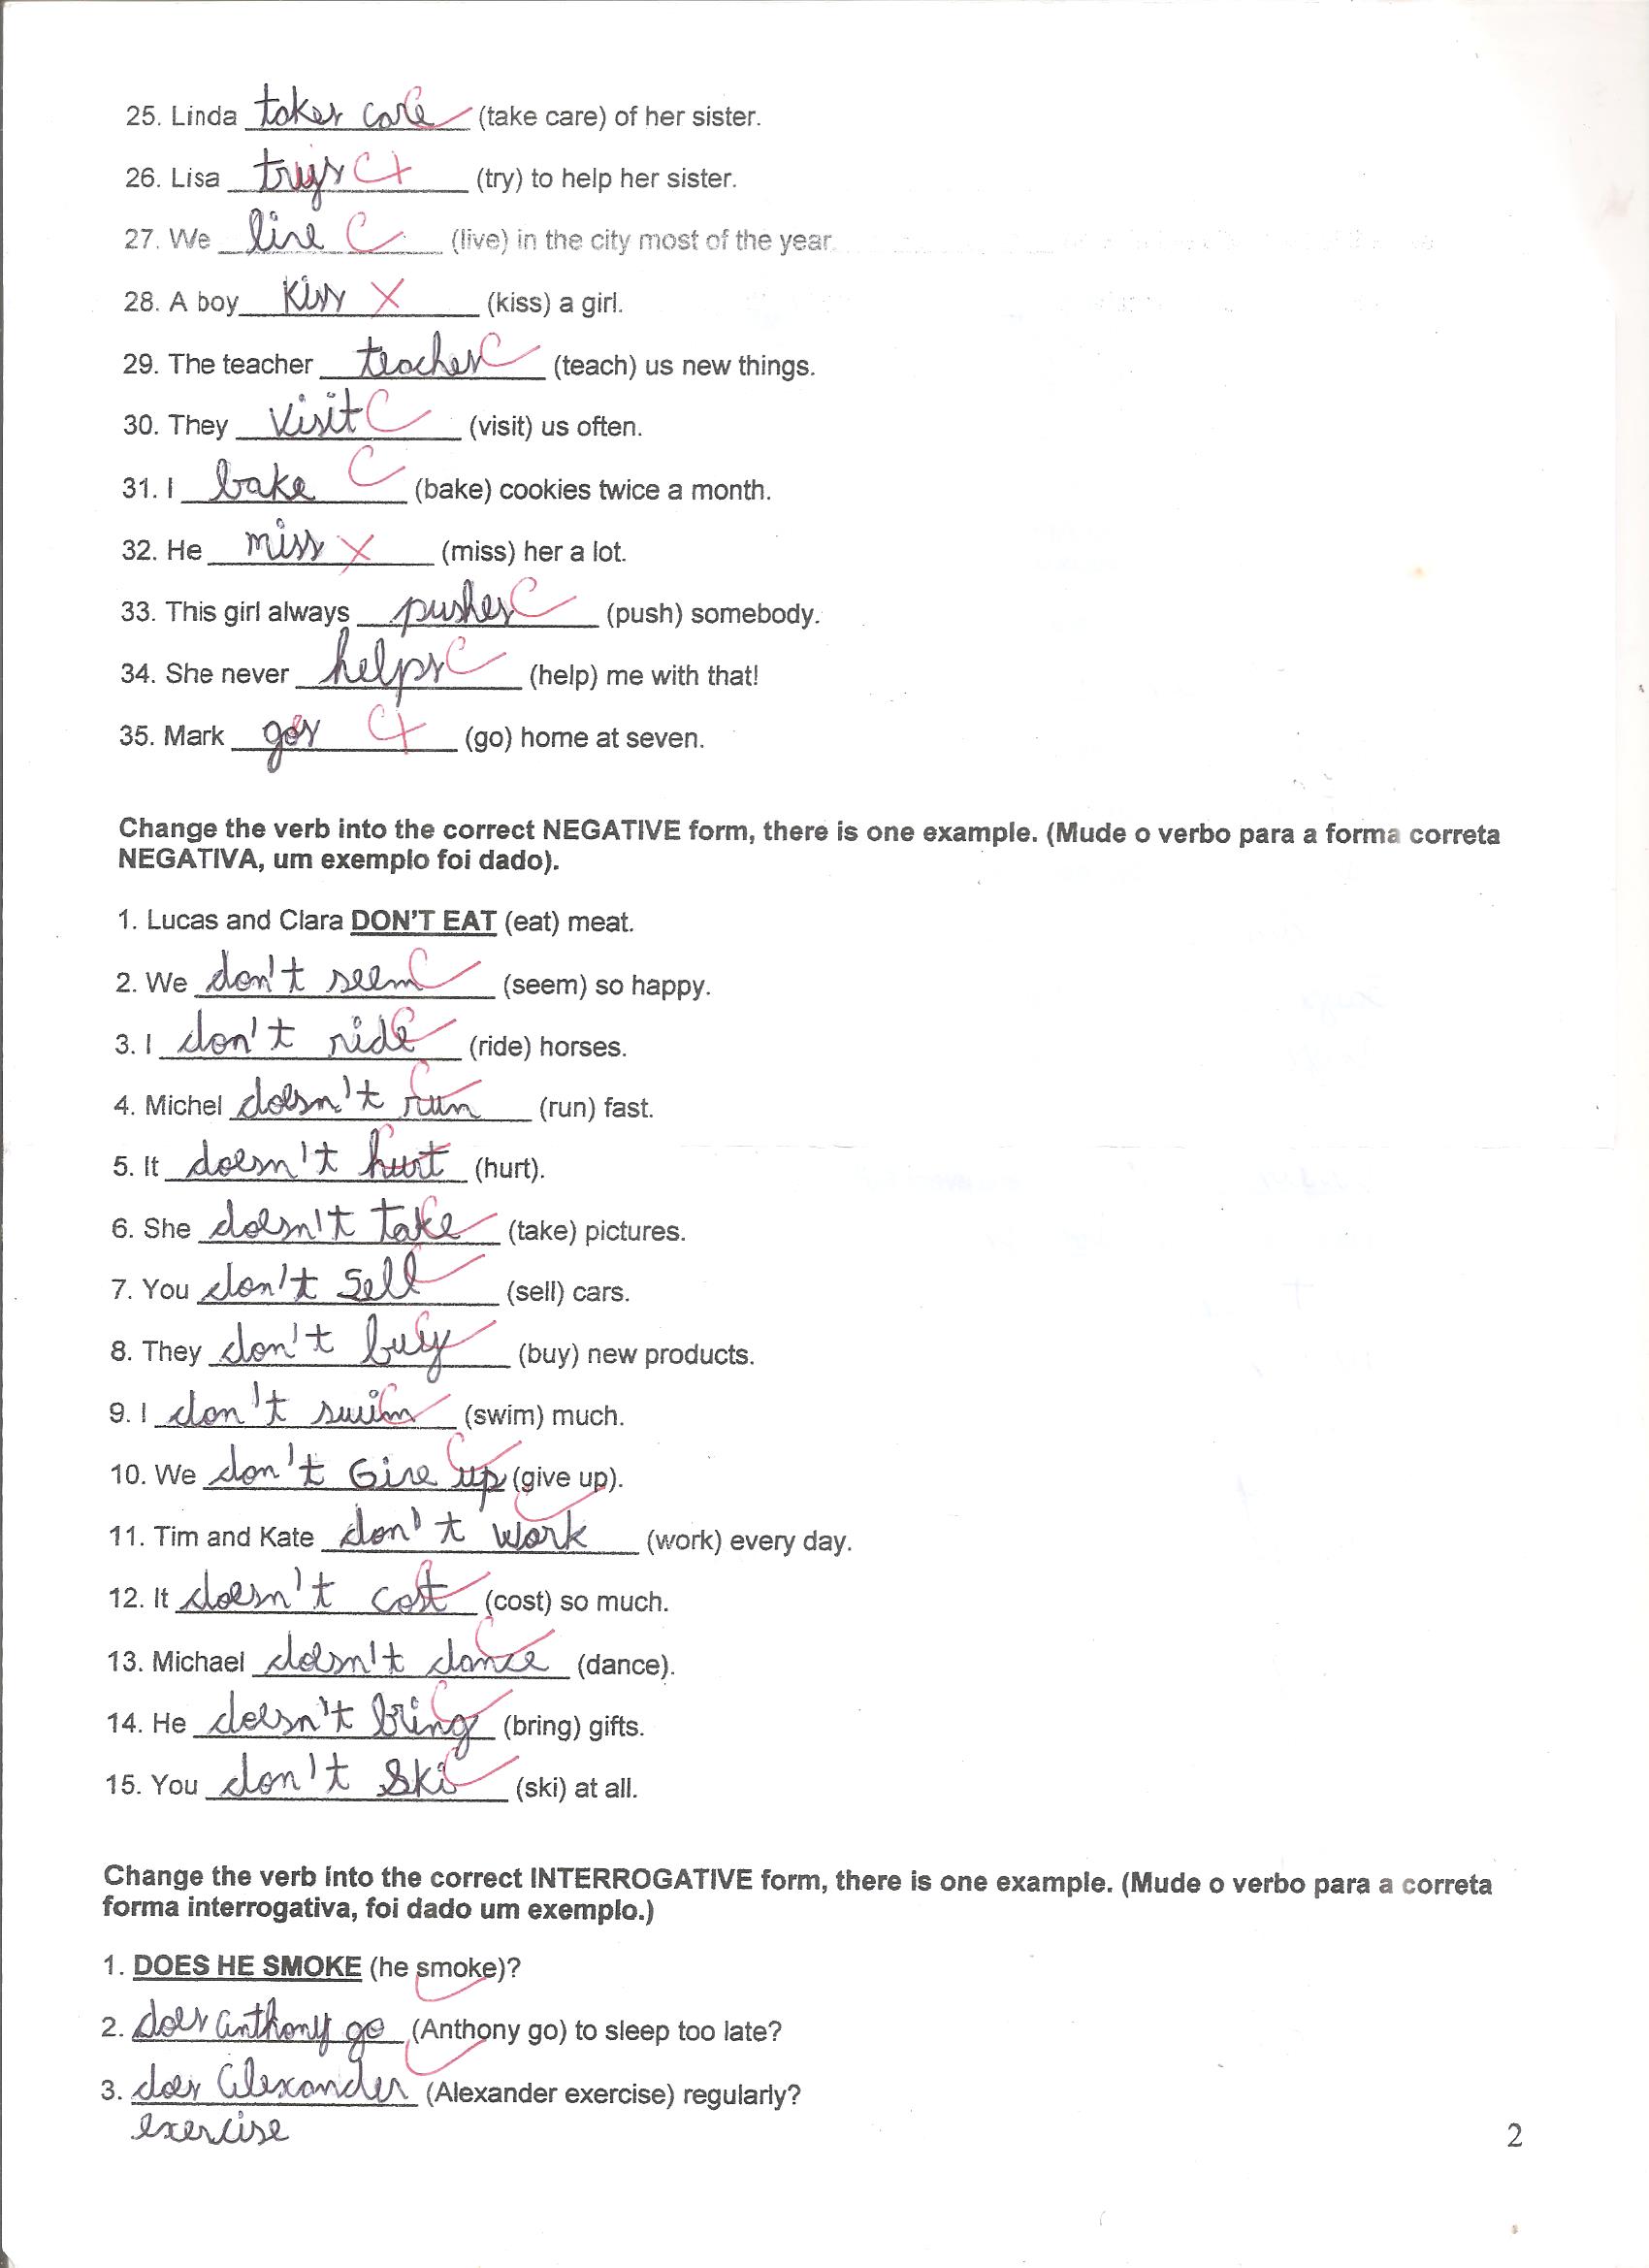 25. Linda takes care C (take care) of her sister.
26. Lisa trys C+ (try) to help her sister.
27. We live C (live) in the city most of the year.
28. A boy kiss X (kiss) a girl.
29. The teacher teaches C (teach) us new things.
30. They visit C (visit) us often.
31. I bake C (bake) cookies twice a month.
32. He miss X (miss) her a lot.
33. This girl always pushes C (push) somebody.
34. She never helps C (help) me with that!
35. Mark gos C+ (go) home at seven.
Change the verb into the correct NEGATIVE form, there is one example. (Mude o verbo para a forma correta
NEGATIVA, um exemplo foi dado).
1. Lucas and Clara DON'T EAT (eat) meat.
2. We don't seem C (seem) so happy.
3. I don't ride C (ride) horses.
4. Michel doesn't run C (run) fast.
5. It doesn't hurt C (hurt).
6. She doesn't take C (take) pictures.
7. You don't sell C (sell) cars.
8. They don't buy C (buy) new products.
9. I don't swim C (swim) much.
10. We don't Give up C (give up).
11. Tim and Kate don't work C (work) every day.
12. It doesn't cost C (cost) so much.
13. Michael doesn't dance C (dance).
14. He doesn't bring C (bring) gifts.
15. You don't ski C (ski) at all.
Change the verb into the correct INTERROGATIVE form, there is one example. (Mude o verbo para a correta
forma interrogativa, foi dado um exemplo.)
1. DOES HE SMOKE (he smoke)?
2. does anthony go C (Anthony go) to sleep too late?
3. does Alexander C (Alexander exercise) regularly?
exercise
2